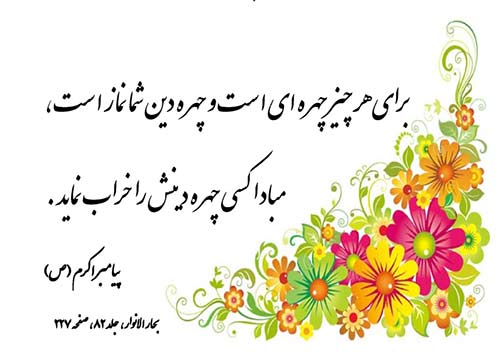 برای هر چیز چهره ای است و چهره دین شما نماز است،
مبادا کسی چهره دینش را خراب نماید.
پیامبر اکرم (ص)
بحارالانوار، جلد ۸۲، صفحه ۲۲۷